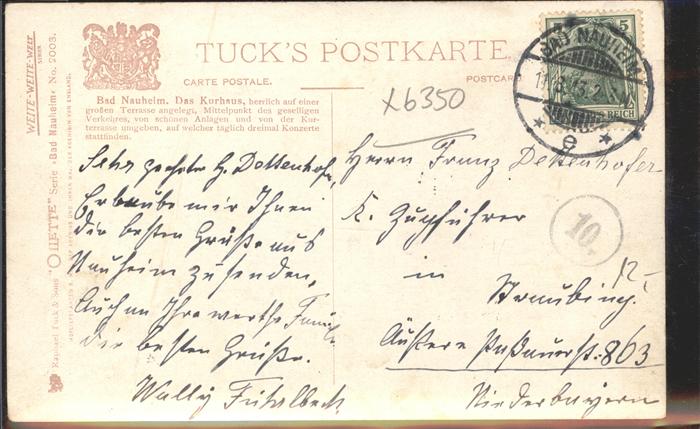 WEITE-WEITE-WELT
SERIEN
Raphael Tuck & Sons "OILETTE" Serie »Bad Nauheim« No. 2003.
TUCK'S POSTKARTE
CARTE POSTALE.
POSTCARD
Bad Nauheim. Das Kurhaus, herrlich auf einer
großen Terrasse angelegt, Mittelpunkt des geselligen
Verkehres, von schönen Anlagen und von der Kur-
terrasse umgeben, auf welcher täglich dreimal Konzerte
stattfinden.
x6350
5
BAD NAUHEIM
REICH
e
10.
Sehr geehrter H. Dettenhofer,
Erlaube mir Ihnen
die besten Grüße aus
Nauheim zu senden,
Auch an Ihre werthe Famil.
die besten Grüße.
Wally
Herrn Franz Dettenhofer
K. Zugführer
in
Straubing.
12-
Äußere Passauerst: 863
Niederbayern